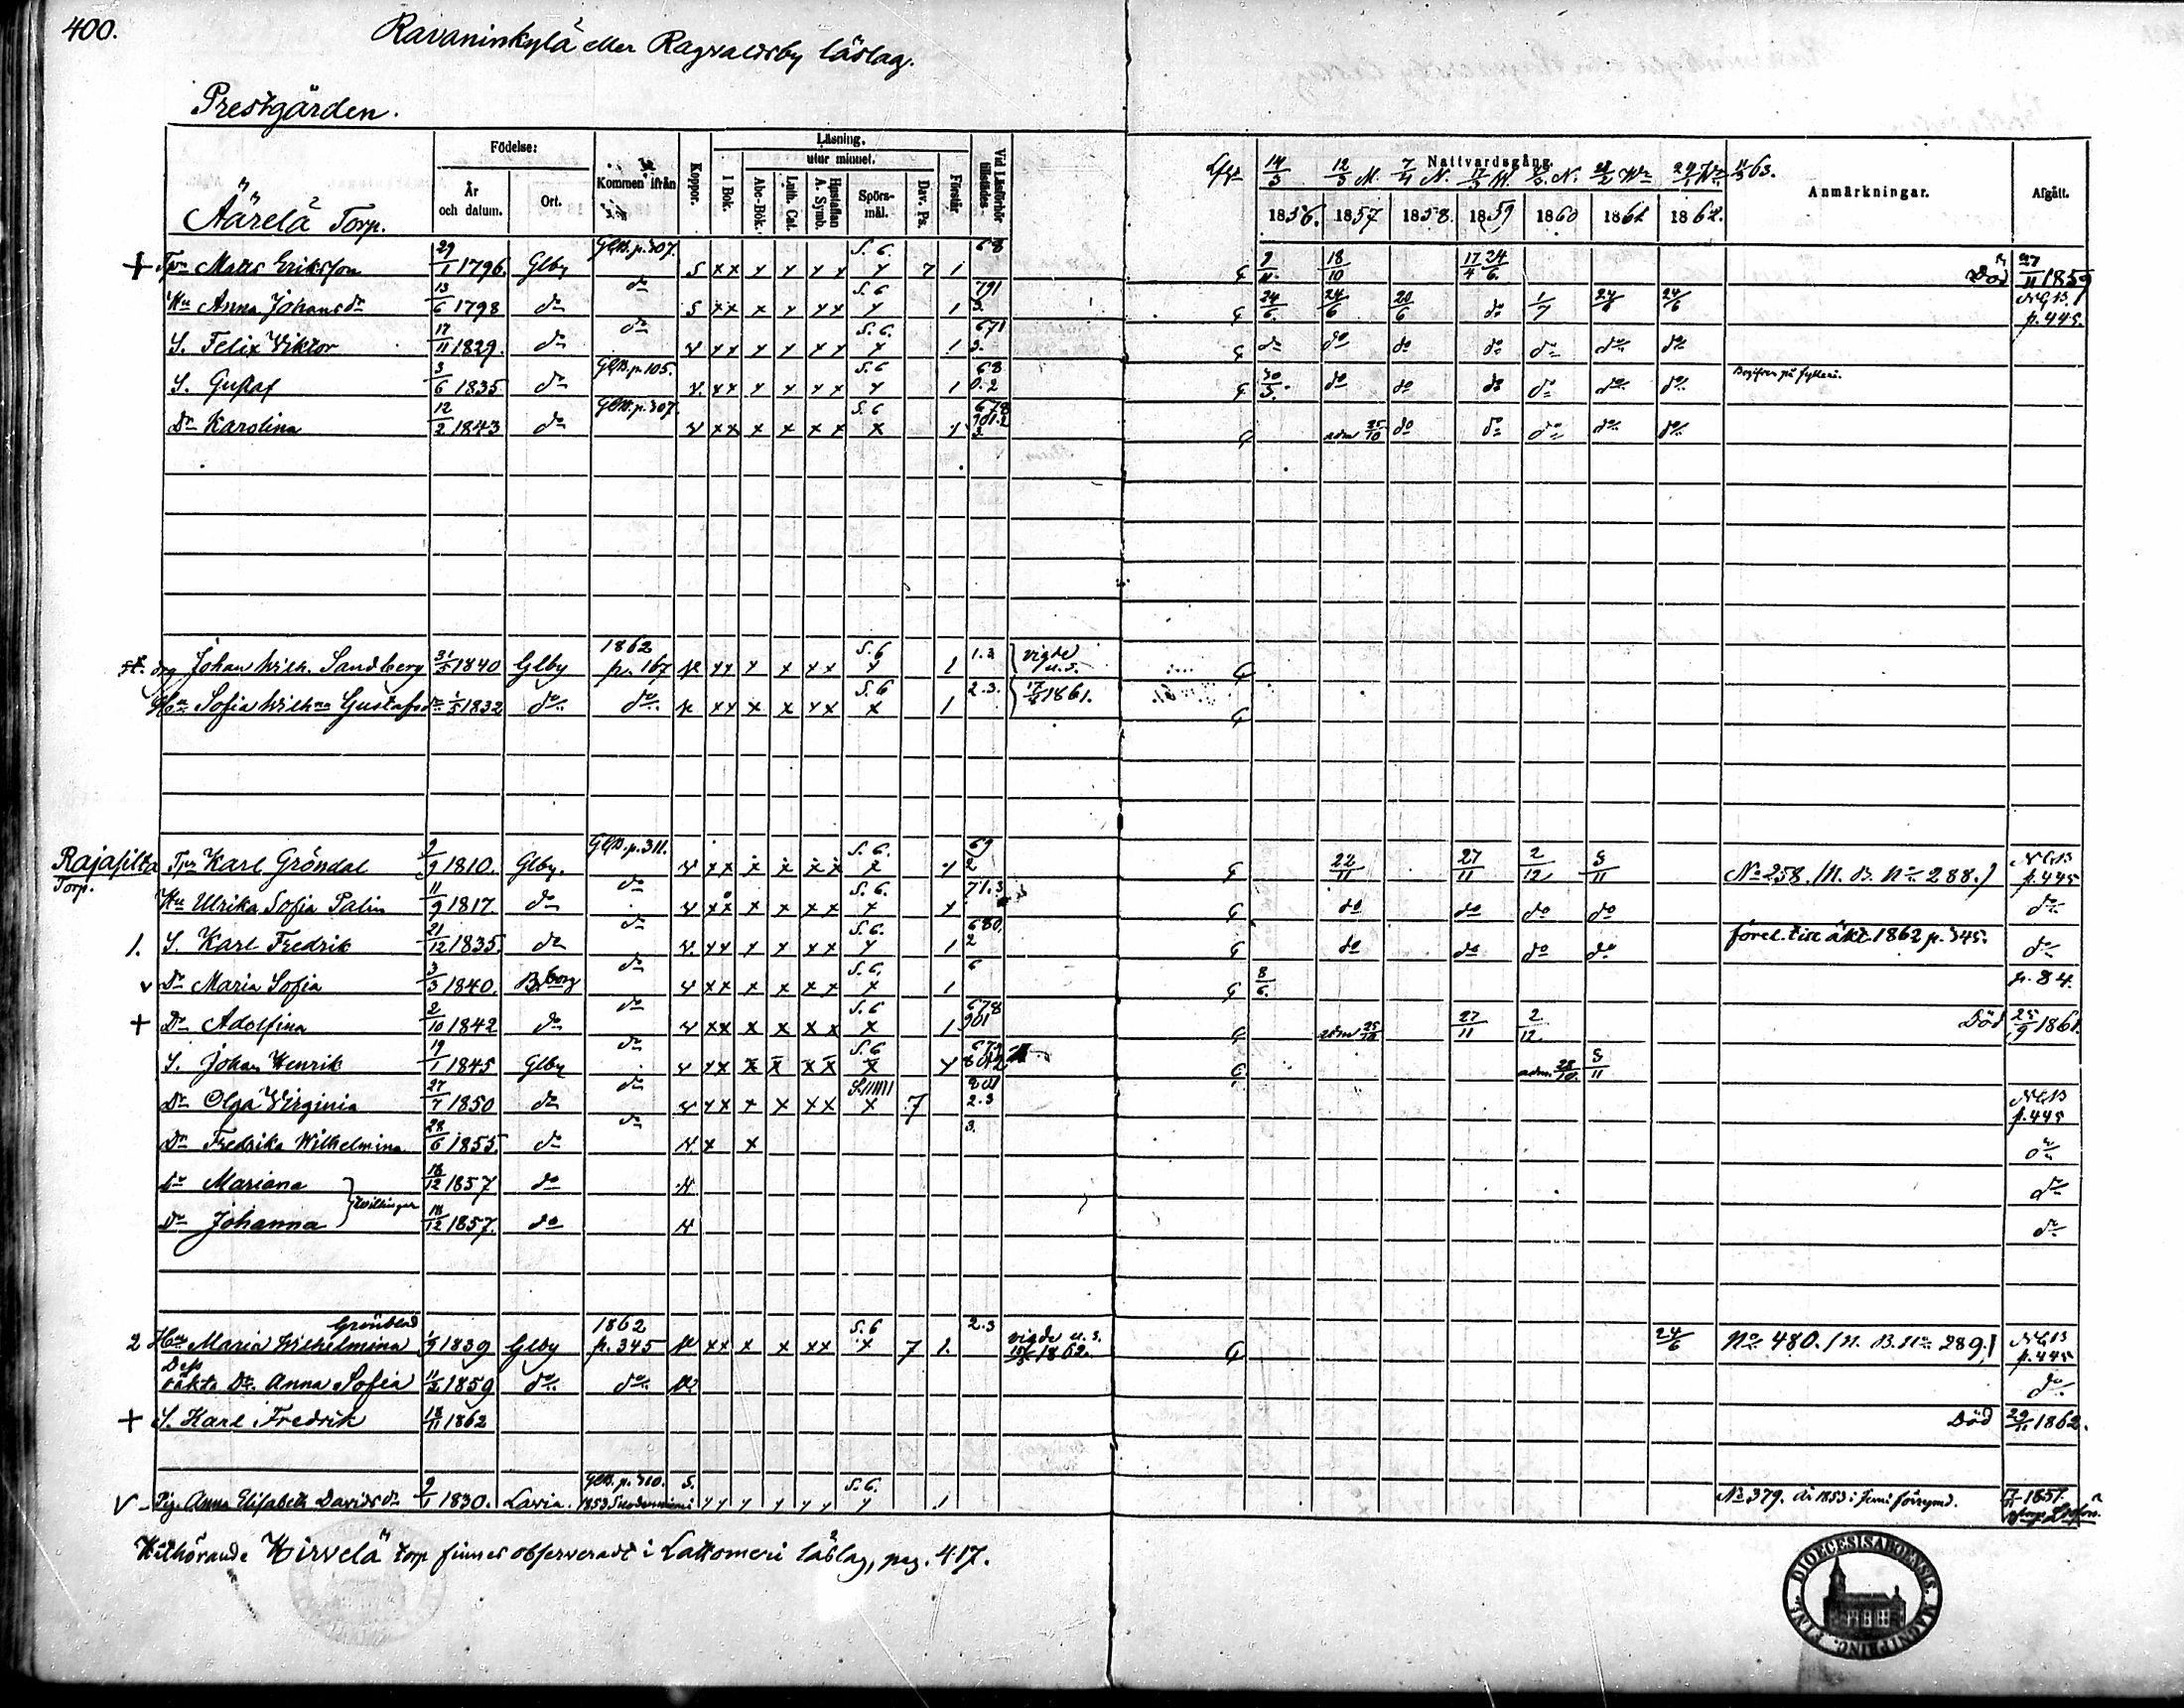 400.
Ravaninkylä eller Ragvaldsby läslag.
Prestgården.
Födelse: Kommen ifrån Koppor. Läsning. Vid Läsförhör tillstädes Nattvardsgång. Anmärkningar. Afgått.
År och datum. Ort. I Bok. utur minnet. Abc-Bok. Luth. Cat. Hustaflan A. Symb. Spörsmål. Dav. Ps. Förstår
14/3 12/3 M. 7/4 N. 11/3 63.
Äärelä Torp. 1856. 1857 1858. 1859 1860 1861 1862.
+ Tpr Matts Eriksson 29/1 1796 Glby GlB. p. 307. S x x x x x x S. 6. x 7 1 68 G 9/11. 18/10 17/4 24/6. Död 27/11 1859
Hu Anna Johansdr 13/6 1798 do do S x x x x x x S. 6 x 1 791 3. G 24/6. 24/6 20/6 do 1/7 24/6 24/6 N.G.B. p. 445.
S. Felix Viktor 17/11 1829. do do v x x x x x x S. 6. x 1 671 3. G do do do do do do do
S. Gustaf 3/6 1835 do GlB. p. 105. v. x x x x x x S. 6 x 1 68 0.2 G 30/3. do do do do do do Begifven på fylleri.
Dr Karolina 12/2 1843 do GlB. p. 307. v x x x x x x S. 6 x 1 678 901.2 3. G adm 25/10 do do do do do
Johan Wilh. Sandberg 31/5 1840 Glby 1862 p. 167 N x x x x x x S. 6 x 1 1.3 vigde u. s. G
Hu Sofia Wilhna Gustafsdr 1/5 1832 do do N x x x x x x S. 6 x 1 2.3. 1861. G
Rajasilta Torp. Tpr Karl Gröndal 9/9 1810. Glby. GlB. p. 311. v x x x x x x S. 6. x 1 69 2 G 22/11 27/11 2/12 3/11 No 258. (N. B. No 288.) N.G.B p. 445
Hu Ulrika Sofia Palin 11/9 1817. do do v x x x x x x S. 6. x 1 71.3 G do do do do do
1. S. Karl Fredrik 21/12 1835 do do v. x x x x x x S. 6. x 1 680. 2 G do do do do förel. till äkt. 1862 p. 345. do
v Dr Maria Sofia 3/3 1840. B.borg do v x x x x x x S. 6. x 1 6 G 8/6. p. 84.
+ Dr Adolfina 2/10 1842 do do v x x x x x x S. 6 x 1 678 901 G adm 25/10 27/11 2/12 Död 25/9 1861.
S. Johan Henrik 19/1 1845 Glby do v x x x x x x S. 6 x 1 G adm. 28/10. 3/11
Dr Olga Virginia 27/7 1850 do do v x x x x x x x 7 801 2.3 N.G.B p. 445
Dr Fredrika Wilhelmina 28/6 1855. do do N. x x 3. do
Dr Mariana 18/12 1857 do N do
Dr Johanna } Tvillingar 18/12 1857. do N do
Grönblad
2 Hu Maria Wilhelmina 1/9 1839 Glby 1862 p. 345 N x x x x x x S. 6 x 7 1. 2.3 vigde u. s. 1862. G 24/6 No 480. (N. B. No 289.) N.G.B p. 445
Des oäkta Dr. Anna Sofia 11/2 1859 do do N do
+ S. Karl Fredrik 18/11 1862 Död 29/11 1862.
v Pig. Anna Elisabeth Davidsdr 9/1 1830. Lavia. GlB. p. 310. 1853 S. x x x x x x S. 6. x 1 No 379. år 1853 i Juni förrymd. 1857.
Hithörande Hirvelä torp finnes observeradt i Lattomeri läslag, pag. 417.
DIOECESIS ABOENSIS. MAGNI PRINC. FINL.